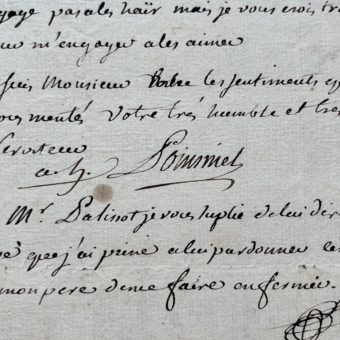 pas a les haïr mais je vous crois tr
m'engager a les aimer
suis Monsieur les sentiments
Votre très humble et tres
serviteur
a. h. Poinsinet
Mr. Palissot je vous suplie de lui dire
que j'ai peine a lui pardonner
mon pere de me faire enfermer.